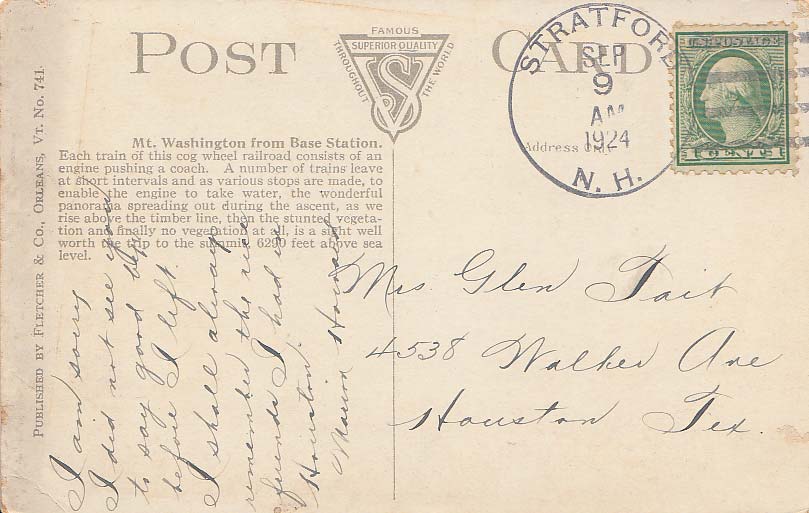 POST CARD
FAMOUS
SUPERIOR QUALITY
THROUGHOUT THE WORLD
VS
STRATFORD
SEP
9
AM
1924
N. H.
U.S. POSTAGE
1 CENT 1
Address Only
Mt. Washington from Base Station.
Each train of this cog wheel railroad consists of an
engine pushing a coach. A number of trains leave
at short intervals and as various stops are made, to
enable the engine to take water, the wonderful
panorama spreading out during the ascent, as we
rise above the timber line, then the stunted vegeta-
tion and finally no vegetation at all, is a sight well
worth the trip to the summit 6290 feet above sea
level.
PUBLISHED BY FLETCHER & CO., ORLEANS, VT. No. 741.
I am sorry
I did not see you
to say good bye
before I left
I shall always
remember the nice
friends I had in
Houston.
Mrs. Glen Tait
4538 Walker Ave
Houston Tex.